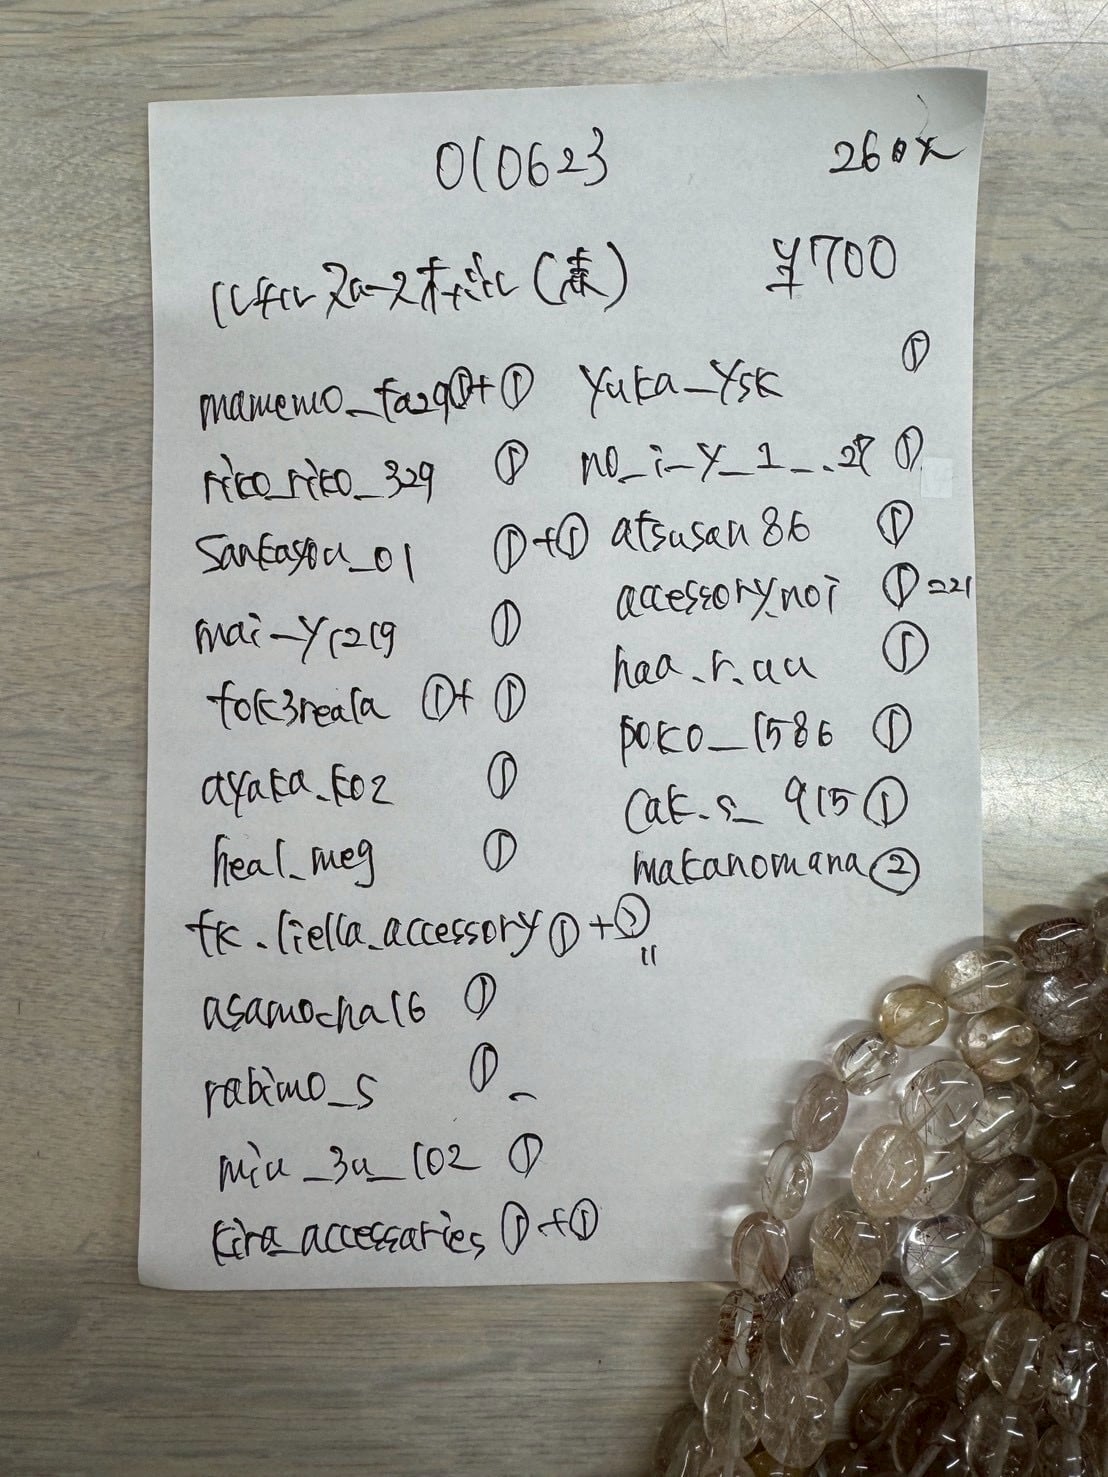 010623
¥700
mamemo_fa29①+①
rico_riko_329 ①
sankasou_01 ①+①
mai-y1219 ①
tok3reala ①+①
ayaka_k02 ①
heal_meg ①
fk.liella_accessory①+②
asamocha16 ①
rabimo_s ①
miu_3u_102 ①
kira_accessaries ①+①
yuka_ysk ①
no_i-y_1_.27 ①
atsusan86 ①
accessory_noi ①=21
haa.r.uu ①
poko_1586 ①
cak.s_915①
makanomana②